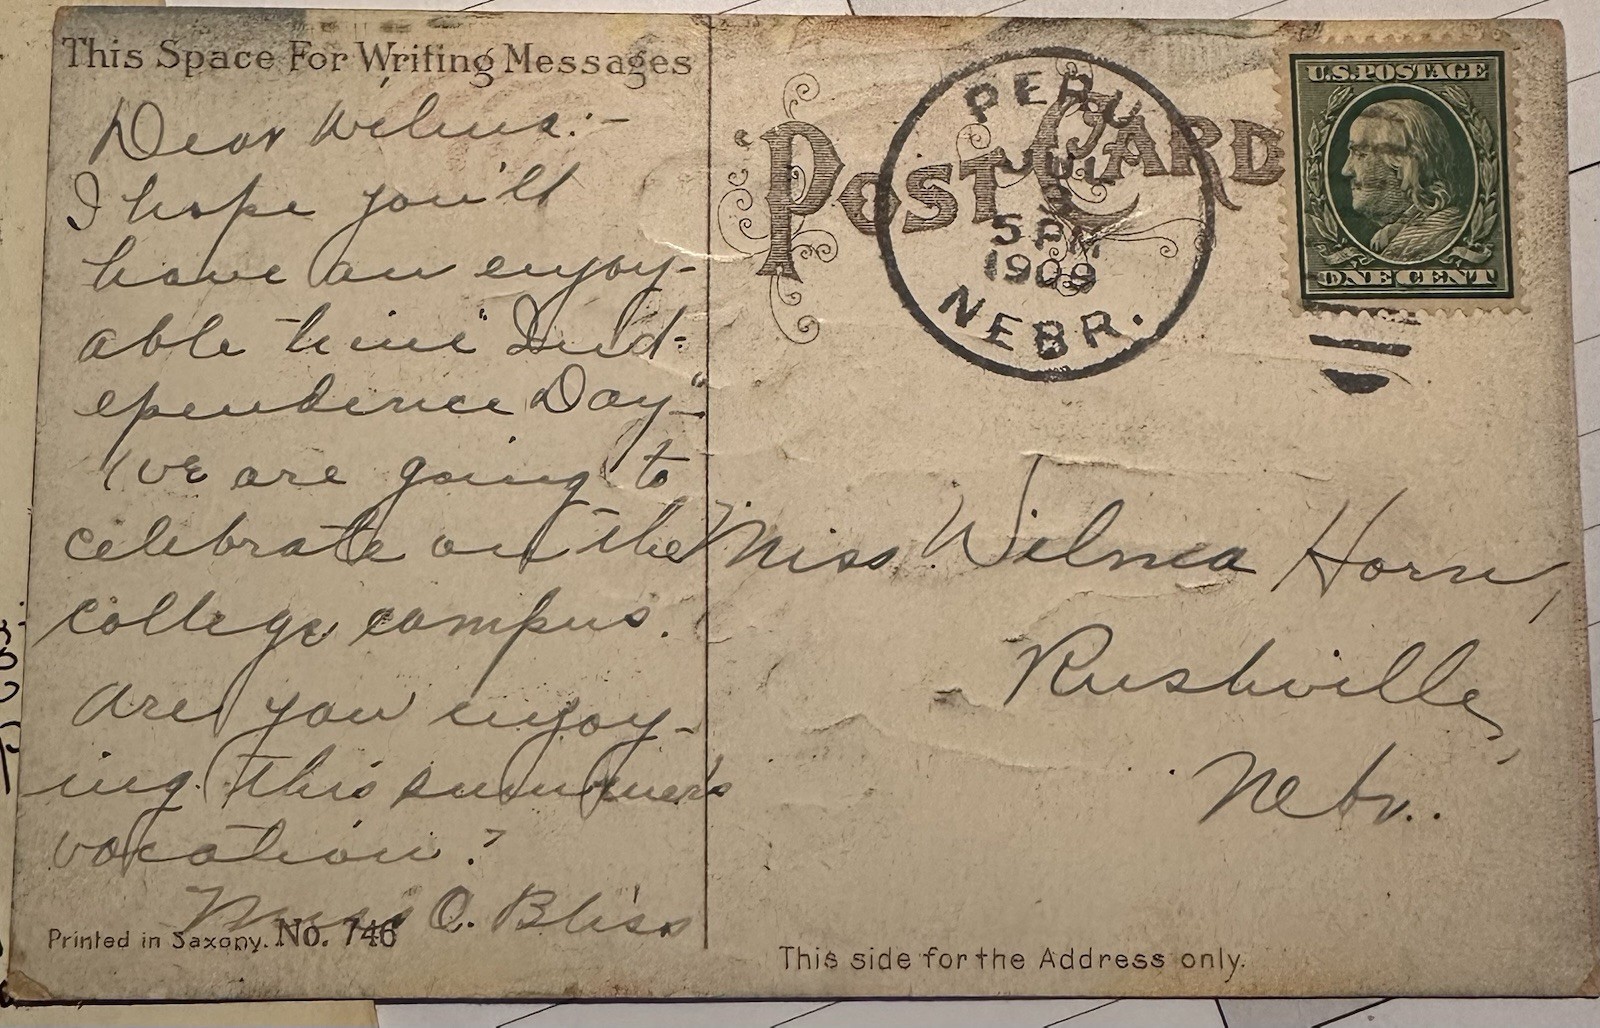 This Space For Writing Messages
Dear Wilma:-
I hope you'll
have an enjoy-
able time "Ind-
ependence Day-"
We are going to
celebrate on the
college campus.
Are you enjoy-
ing this summer's
vacation?
O. Bliss
Printed in Saxony. No. 746
POST CARD
PERU
JUL
5 PM
1909
NEBR.
U.S. POSTAGE
ONE CENT
Miss Wilma Horn,
Rushville,
Nebr.
This side for the Address only.